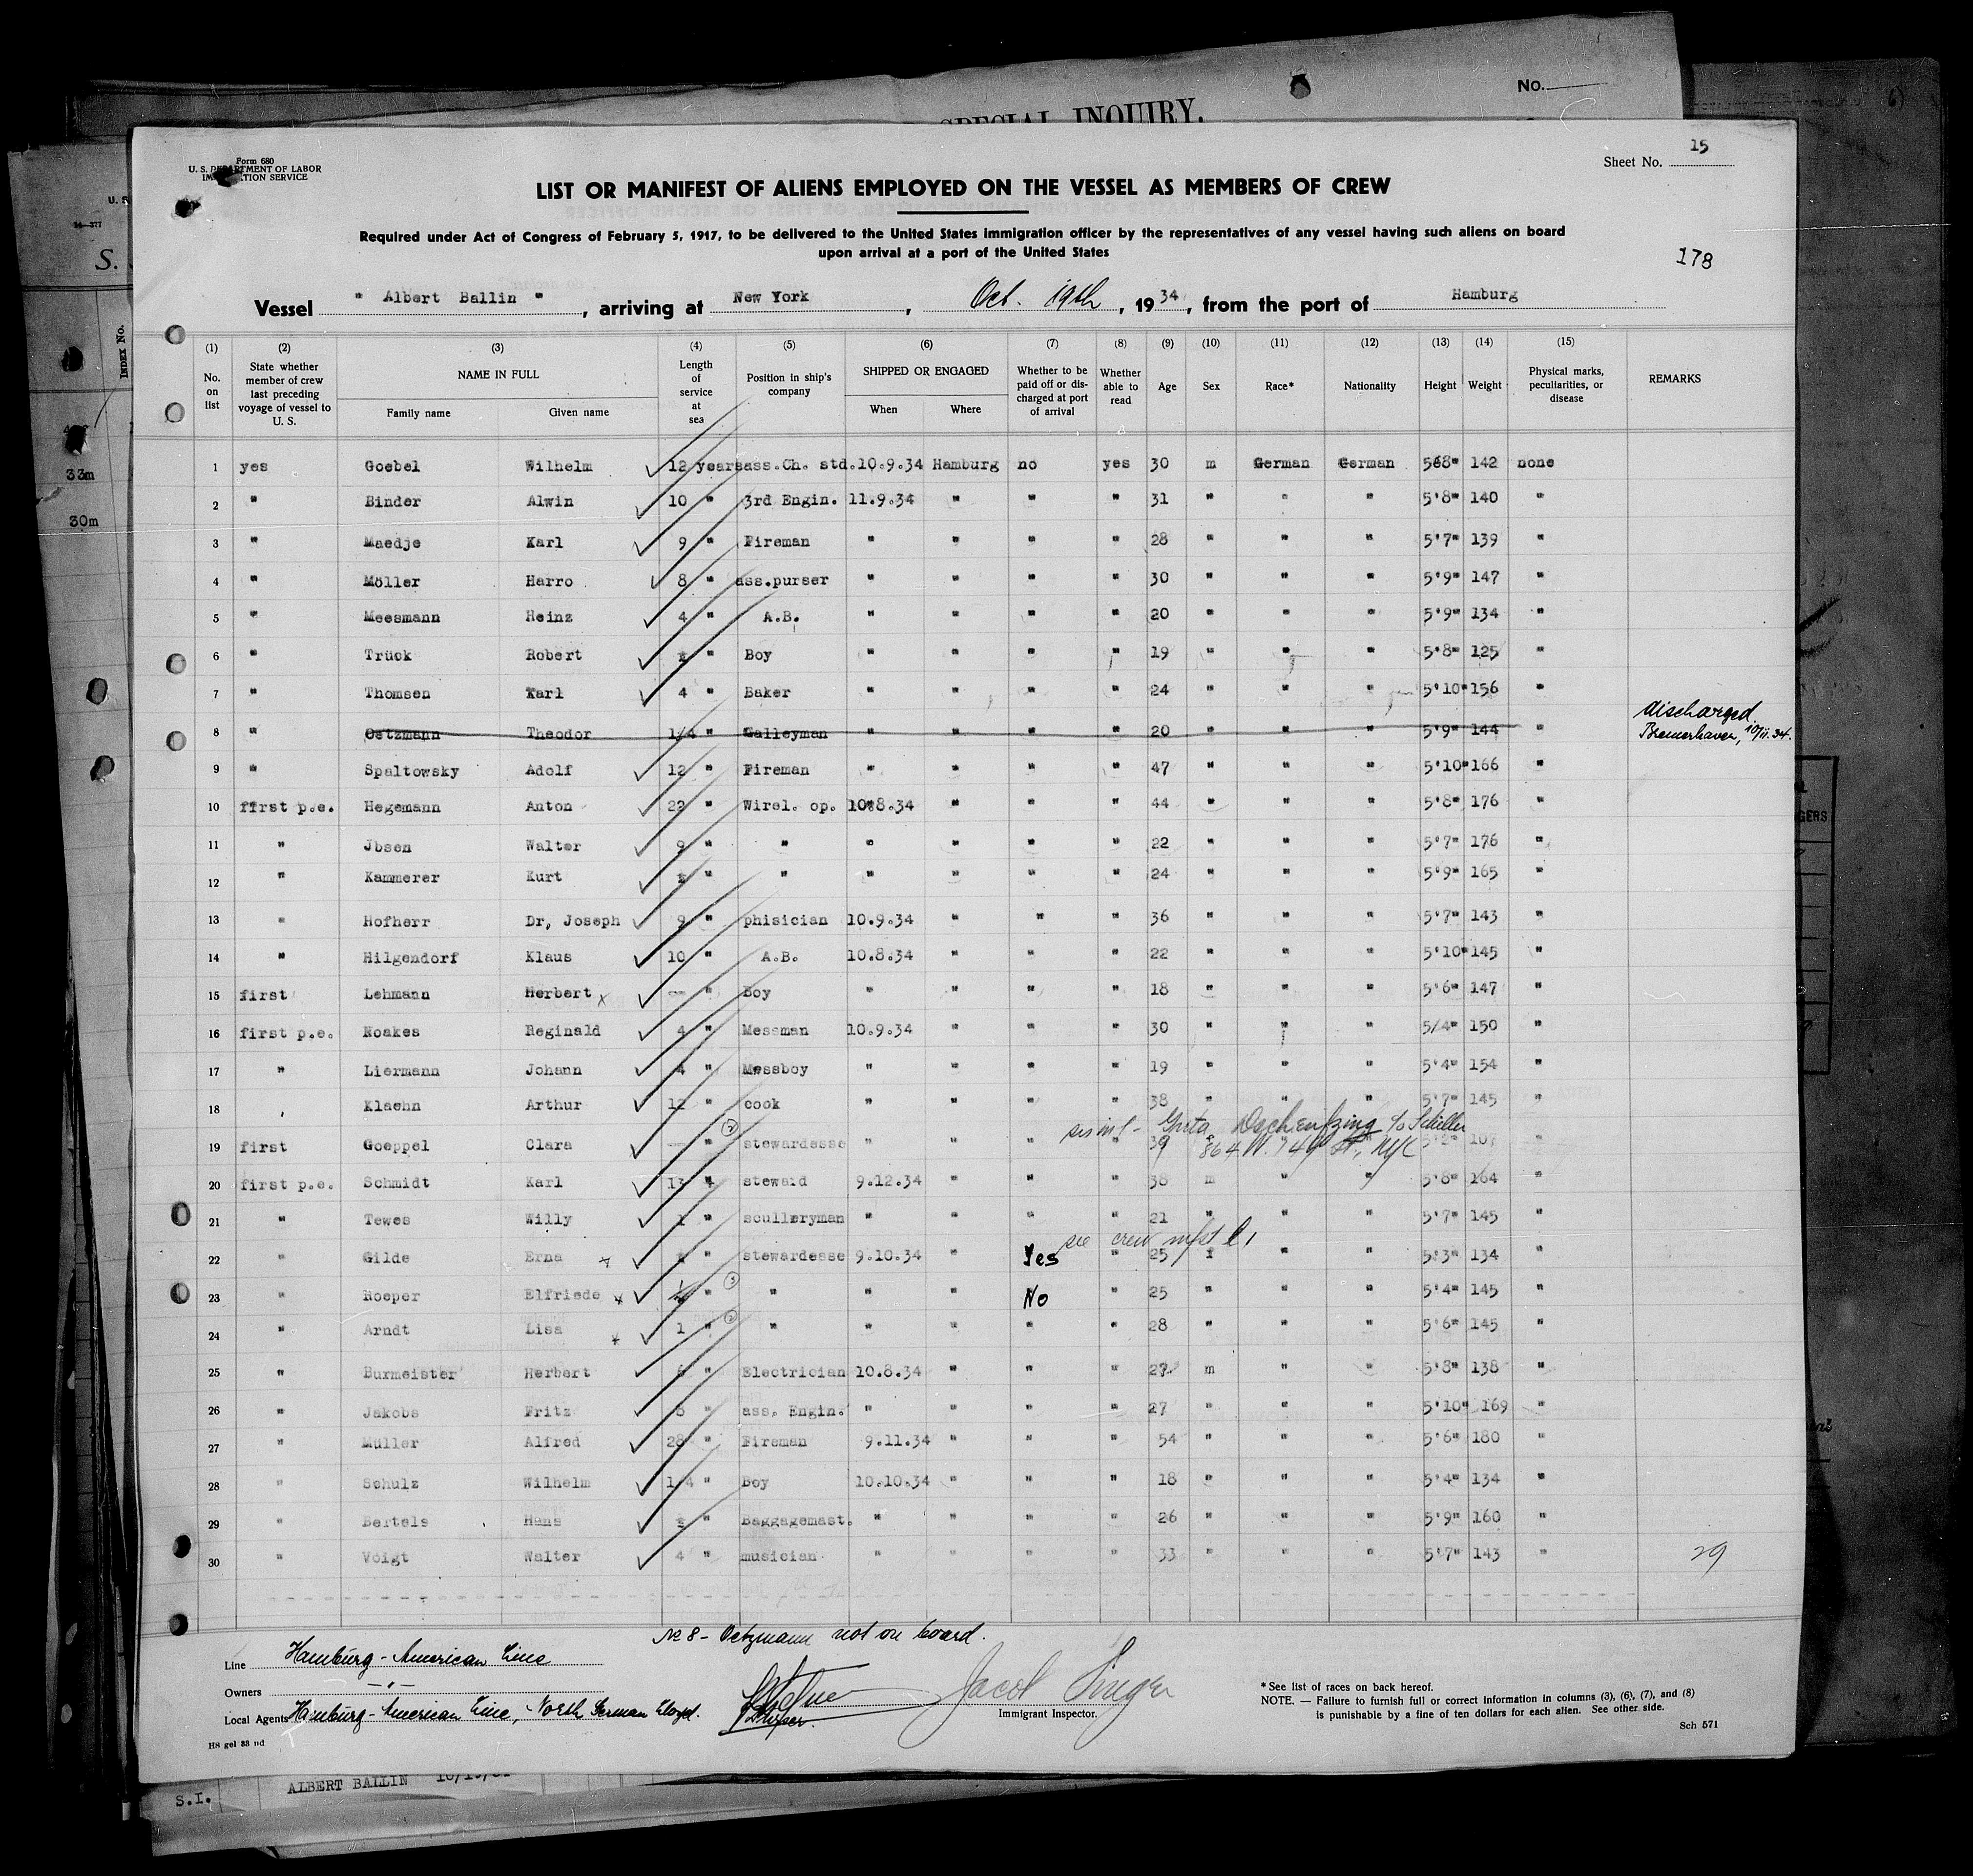 No.
SPECIAL INQUIRY.
Form 680
U. S. DEPARTMENT OF LABOR
IMMIGRATION SERVICE
Sheet No. 15
LIST OR MANIFEST OF ALIENS EMPLOYED ON THE VESSEL AS MEMBERS OF CREW
Required under Act of Congress of February 5, 1917, to be delivered to the United States immigration officer by the representatives of any vessel having such aliens on board
upon arrival at a port of the United States
178
Vessel " Albert Ballin ", arriving at New York, Oct. 19th, 1934, from the port of Hamburg
(1) (2) (3) (4) (5) (6) (7) (8) (9) (10) (11) (12) (13) (14) (15)
No. on list | State whether member of crew last preceding voyage of vessel to U. S. | NAME IN FULL | Family name | Given name | Length of service at sea | Position in ship's company | SHIPPED OR ENGAGED | When | Where | Whether to be paid off or discharged at port of arrival | Whether able to read | Age | Sex | Race* | Nationality | Height | Weight | Physical marks, peculiarities, or disease | REMARKS
1 yes Goebel Wilhelm 12 years ass.Ch. std. 10.9.34 Hamburg no yes 30 m German German 568" 142 none
2 " Binder Alwin 10 " 3rd Engin. 11.9.34 " " " 31 " " " 5'8" 140 "
3 " Maedje Karl 9 " Fireman " " " " 28 " " " 5'7" 139 "
4 " Möller Harro 8 " ass.purser " " " " 30 " " " 5'9" 147 "
5 " Meesmann Heinz 4 " A.B. " " " " 20 " " " 5'9" 134 "
6 " Trück Robert " Boy " " " " 19 " " " 5'8" 125 "
7 " Thomsen Karl 4 " Baker " " " " 24 " " " 5'10" 156 "
8 " Oetzmann Theodor 1/4 " Galleyman " " " " 20 " " " 5'9" 144 " discharged Bremerhaven, 10/11.34.
9 " Spaltowsky Adolf 12 " Fireman " " " " 47 " " " 5'10" 166 "
10 first p.e. Hegemann Anton 22 " Wirel. op. 10.8.34 " " " 44 " " " 5'8" 176 "
11 " Jbsen Walter 9 " " " " " " 22 " " " 5'7" 176 "
12 " Kammerer Kurt " " " " " " 24 " " " 5'9" 165 "
13 " Hofherr Dr, Joseph 9 " phisician 10.9.34 " " " 36 " " " 5'7" 143 "
14 " Hilgendorf Klaus 10 " A.B. 10.8.34 " " " 22 " " " 5'10" 145 "
15 first Lehmann Herbert x -- " Boy " " " " 18 " " " 5'6" 147 "
16 first p.e. Noakes Reginald 4 " Messman 10.9.34 " " " 30 " " " 5/4" 150 "
17 " Liermann Johann 4 " Messboy " " " " 19 " " " 5'4" 154 "
18 " Klaehn Arthur 12 " cook " " " " 38 " " " 5'7" 145 "
19 first Goeppel Clara -- " stewardesse " " " " 39 " 864 W. St, NYC
20 first p.e. Schmidt Karl 13 " steward 9.12.34 " " " 38 m " " 5'8" 164 "
21 " Tewes Willy 1 " sculleryman " " " " 21 " " " 5'7" 145 "
see crew mfst
22 " Gilde Erna x " stewardesse 9.10.34 " Yes " 25 f " " 5'3" 134 "
23 " Roeper Elfriede x " " " " No " 25 " " " 5'4" 145 "
24 " Arndt Lisa x 1 " " " " " " 28 " " " 5'6" 145 "
25 " Burmeister Herbert 6 " Electrician 10.8.34 " " " 27 m " " 5'8" 138 "
26 " Jakobs Fritz 5 " ass. Engin. " " " " 27 " " " 5'10" 169 "
27 " Müller Alfred 28 " Fireman 9.11.34 " " " 54 " " " 5'6" 180 "
28 " Schulz Wilhelm 1/4 " Boy 10.10.34 " " " 18 " " " 5'4" 134 "
29 " Bertels Hans " Baggagemast. " " " " 26 " " " 5'9" 160 "
30 " Voigt Walter 4 " musician " " " " 33 " " " 5'7" 143 " 29
No 8 - Oetzmann not on board.
Line Hamburg-American Line
Owners - " -
Local Agents Hamburg-American Line, North German Lloyd.
Jacob Singer
Immigrant Inspector.
* See list of races on back hereof.
NOTE. — Failure to furnish full or correct information in columns (3), (6), (7), and (8)
is punishable by a fine of ten dollars for each alien. See other side.
Sch 571
ALBERT BALLIN
S.I.
33m
30m
INDEX No.